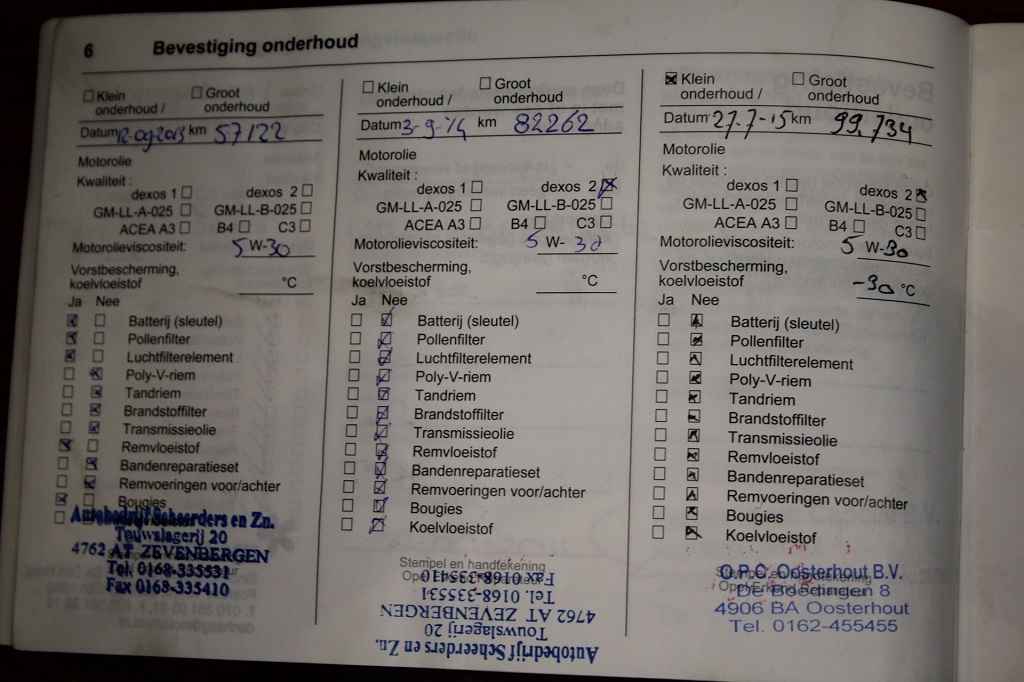 6 Bevestiging onderhoud
☐ Klein onderhoud / ☐ Groot onderhoud
Datum 12-09-2013 km 57122
Motorolie
Kwaliteit :
dexos 1 ☐ dexos 2 ☐
GM-LL-A-025 ☐ GM-LL-B-025 ☐
ACEA A3 ☐ B4 ☐ C3 ☐
Motorolieviscositeit: 5 W-30
Vorstbescherming,
koelvloeistof °C
Ja Nee
☒ ☐ Batterij (sleutel)
☒ ☐ Pollenfilter
☒ ☐ Luchtfilterelement
☐ ☒ Poly-V-riem
☐ ☒ Tandriem
☐ ☒ Brandstoffilter
☐ ☒ Transmissieolie
☒ ☐ Remvloeistof
☐ ☒ Bandenreparatieset
☐ ☒ Remvoeringen voor/achter
☒ ☐ Bougies
Autobedrijf Scheerders en Zn.
Touwslagerij 20
4762 AT ZEVENBERGEN
Tel. 0168-335531
Fax 0168-335410
☐ Klein onderhoud / ☐ Groot onderhoud
Datum 3-9-14 km 82262
Motorolie
Kwaliteit :
dexos 1 ☐ dexos 2 ☒
GM-LL-A-025 ☐ GM-LL-B-025 ☐
ACEA A3 ☐ B4 ☐ C3 ☐
Motorolieviscositeit: 5 W- 30
Vorstbescherming,
koelvloeistof °C
Ja Nee
☐ ☒ Batterij (sleutel)
☐ ☒ Pollenfilter
☐ ☒ Luchtfilterelement
☐ ☒ Poly-V-riem
☐ ☒ Tandriem
☐ ☒ Brandstoffilter
☐ ☒ Transmissieolie
☐ ☒ Remvloeistof
☐ ☒ Bandenreparatieset
☐ ☒ Remvoeringen voor/achter
☐ ☒ Bougies
☐ ☒ Koelvloeistof
Stempel en handtekening
Autobedrijf Scheerders en Zn.
Touwslagerij 20
4762 AT ZEVENBERGEN
Tel. 0168-335531
Fax 0168-335410
☒ Klein onderhoud / ☐ Groot onderhoud
Datum 27-7-15 km 99.734
Motorolie
Kwaliteit :
dexos 1 ☐ dexos 2 ☒
GM-LL-A-025 ☐ GM-LL-B-025 ☐
ACEA A3 ☐ B4 ☐ C3 ☐
Motorolieviscositeit: 5 W-30
Vorstbescherming,
koelvloeistof -30 °C
Ja Nee
☐ ☒ Batterij (sleutel)
☐ ☒ Pollenfilter
☐ ☒ Luchtfilterelement
☐ ☒ Poly-V-riem
☐ ☒ Tandriem
☐ ☒ Brandstoffilter
☐ ☒ Transmissieolie
☐ ☒ Remvloeistof
☐ ☒ Bandenreparatieset
☐ ☒ Remvoeringen voor/achter
☐ ☒ Bougies
☐ ☒ Koelvloeistof
Stempel en handtekening
O.P.C. Oosterhout B.V.
8
4906 BA Oosterhout
Tel. 0162-455455